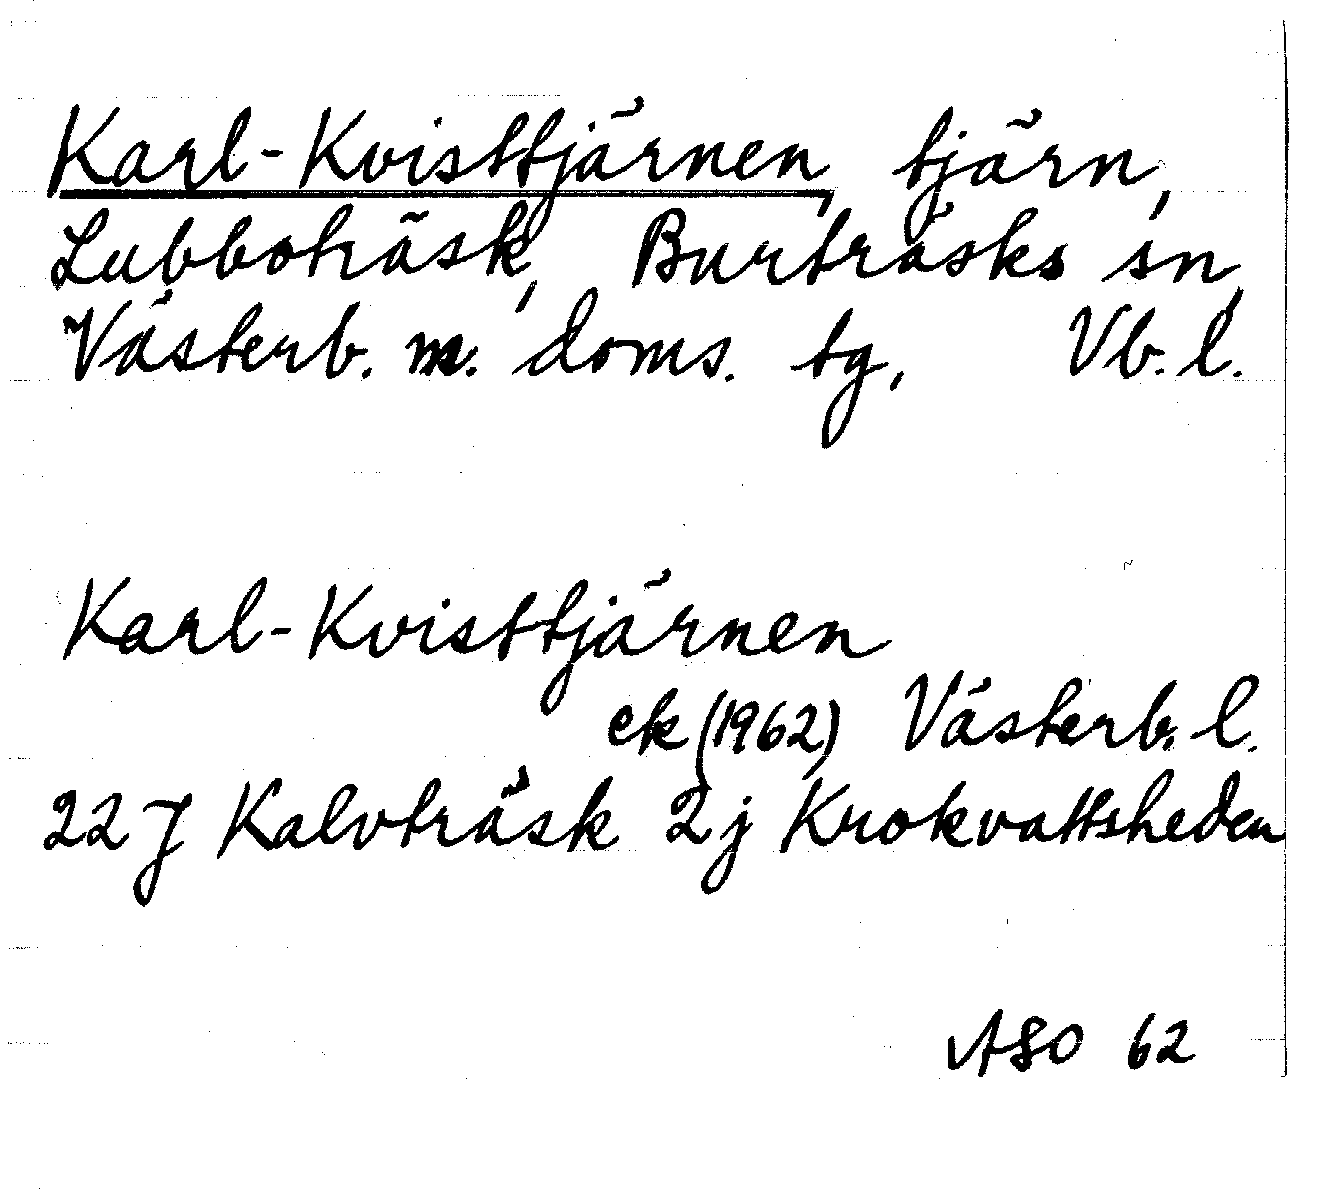 Karl-Kvisttjärnen, tjärn,
Lubboträsk, Burträsks sn,
Västerb. m. doms. tg, Vb. l.
Karl-Kvisttjärnen
ek (1962) Västerb. l.
22 J Kalvträsk 2j Krokvattsheden
ASO 62